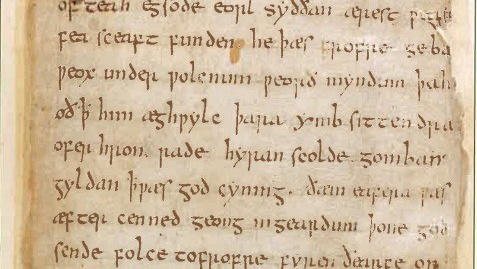 ofteah egsode eorl syððan ærest ƿearð
fea sceaft funden he þæs frofre geba
ƿeox under ƿolcnum ƿeorð myndum þah
oð ꝥ him æghƿylc þara ymb sittendra
ofer hron rade hyran scolde gomban
gyldan ꝥ ƿæs god cyning. ðæm eafera ƿæs
æfter cenned geong in geardum þone god
sende folce to frofre fyren ðearfe on